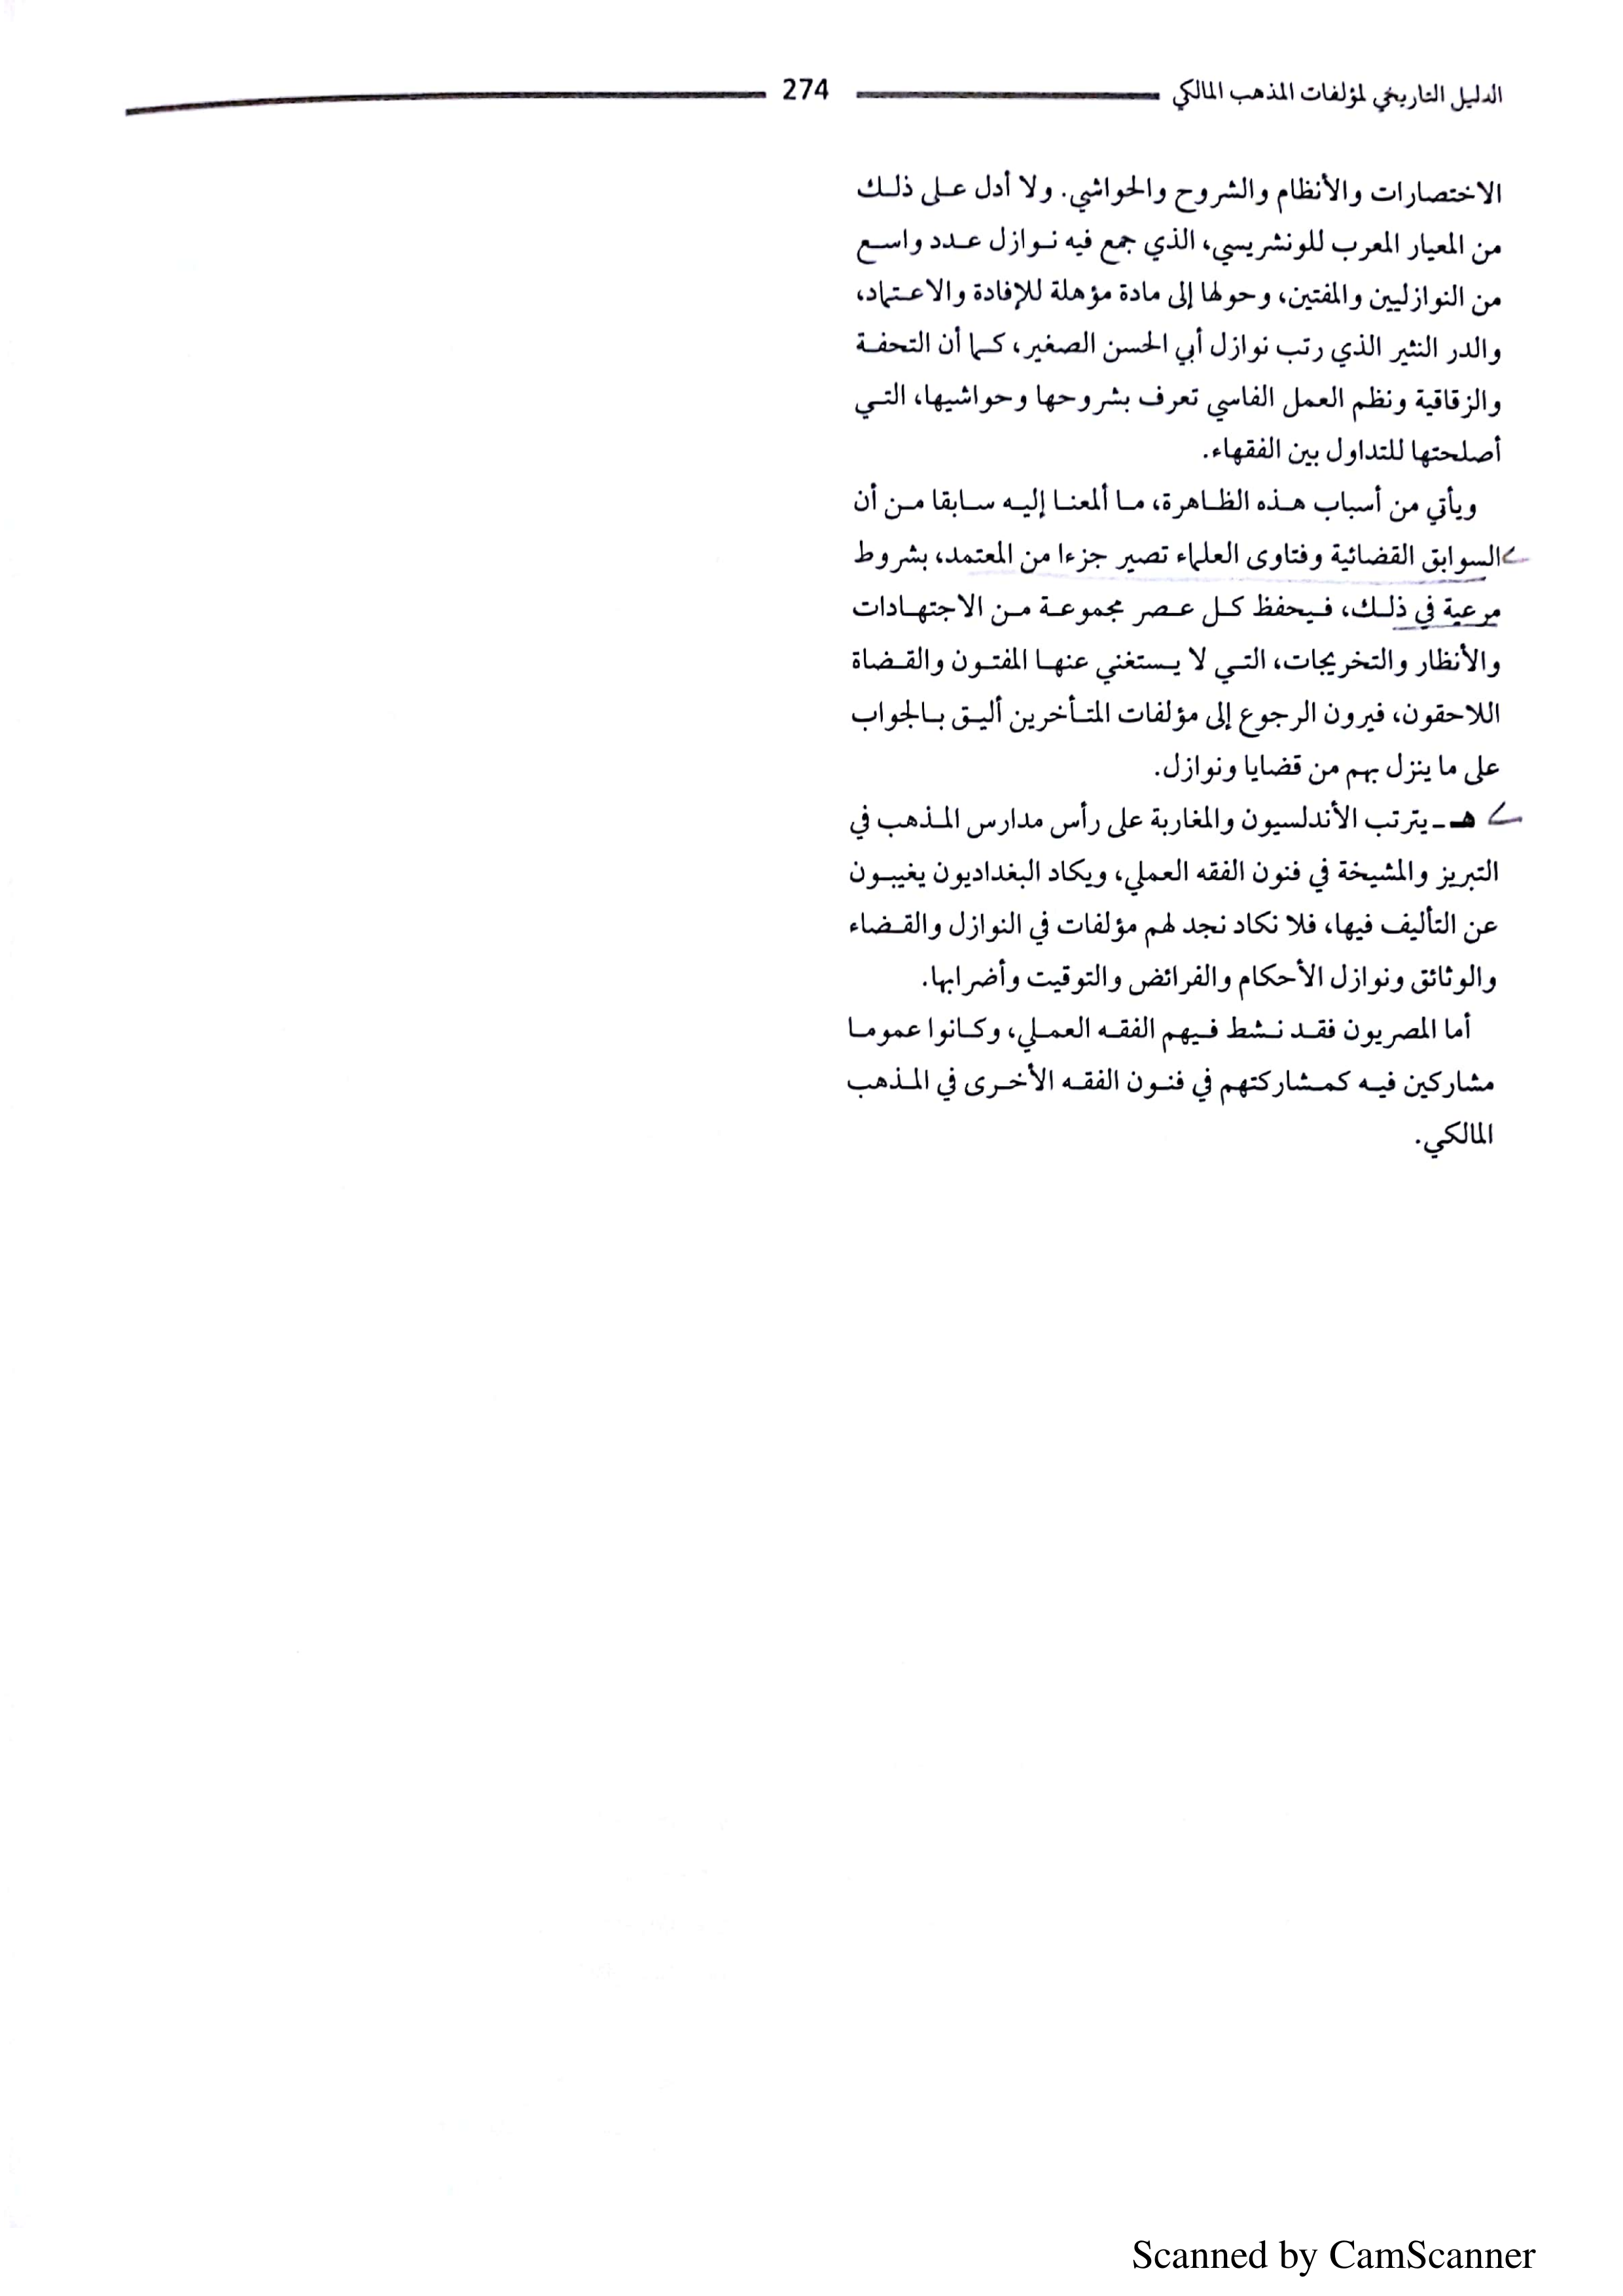 الدليل التاريخي لمؤلفات المذهب المالكي 274
الاختصارات والأنظام والشروح والحواشي. ولا أدل على ذلك
من المعيار المعرب للونشريسي، الذي جمع فيه نوازل عدد واسع
من النوازليين والمفتين، وحولها إلى مادة مؤهلة للإفادة والاعتماد،
والدر النثير الذي رتب نوازل أبي الحسن الصغير، كما أن التحفة
والزقاقية ونظم العمل الفاسي تعرف بشروحها وحواشيها، التي
أصلحتها للتداول بين الفقهاء.
ويأتي من أسباب هذه الظاهرة، ما ألمعنا إليه سابقا من أن
السوابق القضائية وفتاوى العلماء تصير جزءا من المعتمد، بشروط
مرعية في ذلك، فيحفظ كل عصر مجموعة من الاجتهادات
والأنظار والتخريجات، التي لا يستغني عنها المفتون والقضاة
اللاحقون، فيرون الرجوع إلى مؤلفات المتأخرين أليق بالجواب
على ما ينزل بهم من قضايا ونوازل.
هـ - يترتب الأندلسيون والمغاربة على رأس مدارس المذهب في
التبريز والمشيخة في فنون الفقه العملي، ويكاد البغداديون يغيبون
عن التأليف فيها، فلا نكاد نجد لهم مؤلفات في النوازل والقضاء
والوثائق ونوازل الأحكام والفرائض والتوقيت وأضرابها.
أما المصريون فقد نشط فيهم الفقه العملي، وكانوا عموما
مشاركين فيه كمشاركتهم في فنون الفقه الأخرى في المذهب
المالكي.
Scanned by CamScanner